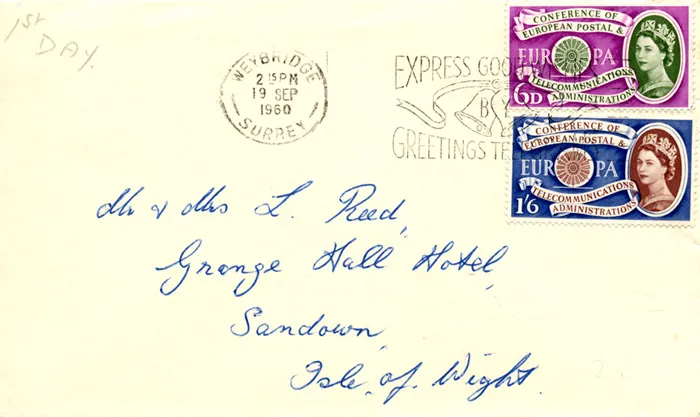 1st
DAY.
WEYBRIDGE
2 15 PM
19 SEP
1960
SURREY
EXPRESS GOOD
BY
GREETINGS TE
CONFERENCE OF
EUROPEAN POSTAL &
EUROPA
TELECOMMUNICATIONS
ADMINISTRATIONS
6D
CONFERENCE OF
EUROPEAN POSTAL &
EUROPA
TELECOMMUNICATIONS
ADMINISTRATIONS
1'6
Mr & Mrs L. Reed,
Grange Hall Hotel,
Sandown,
Isle of Wight.